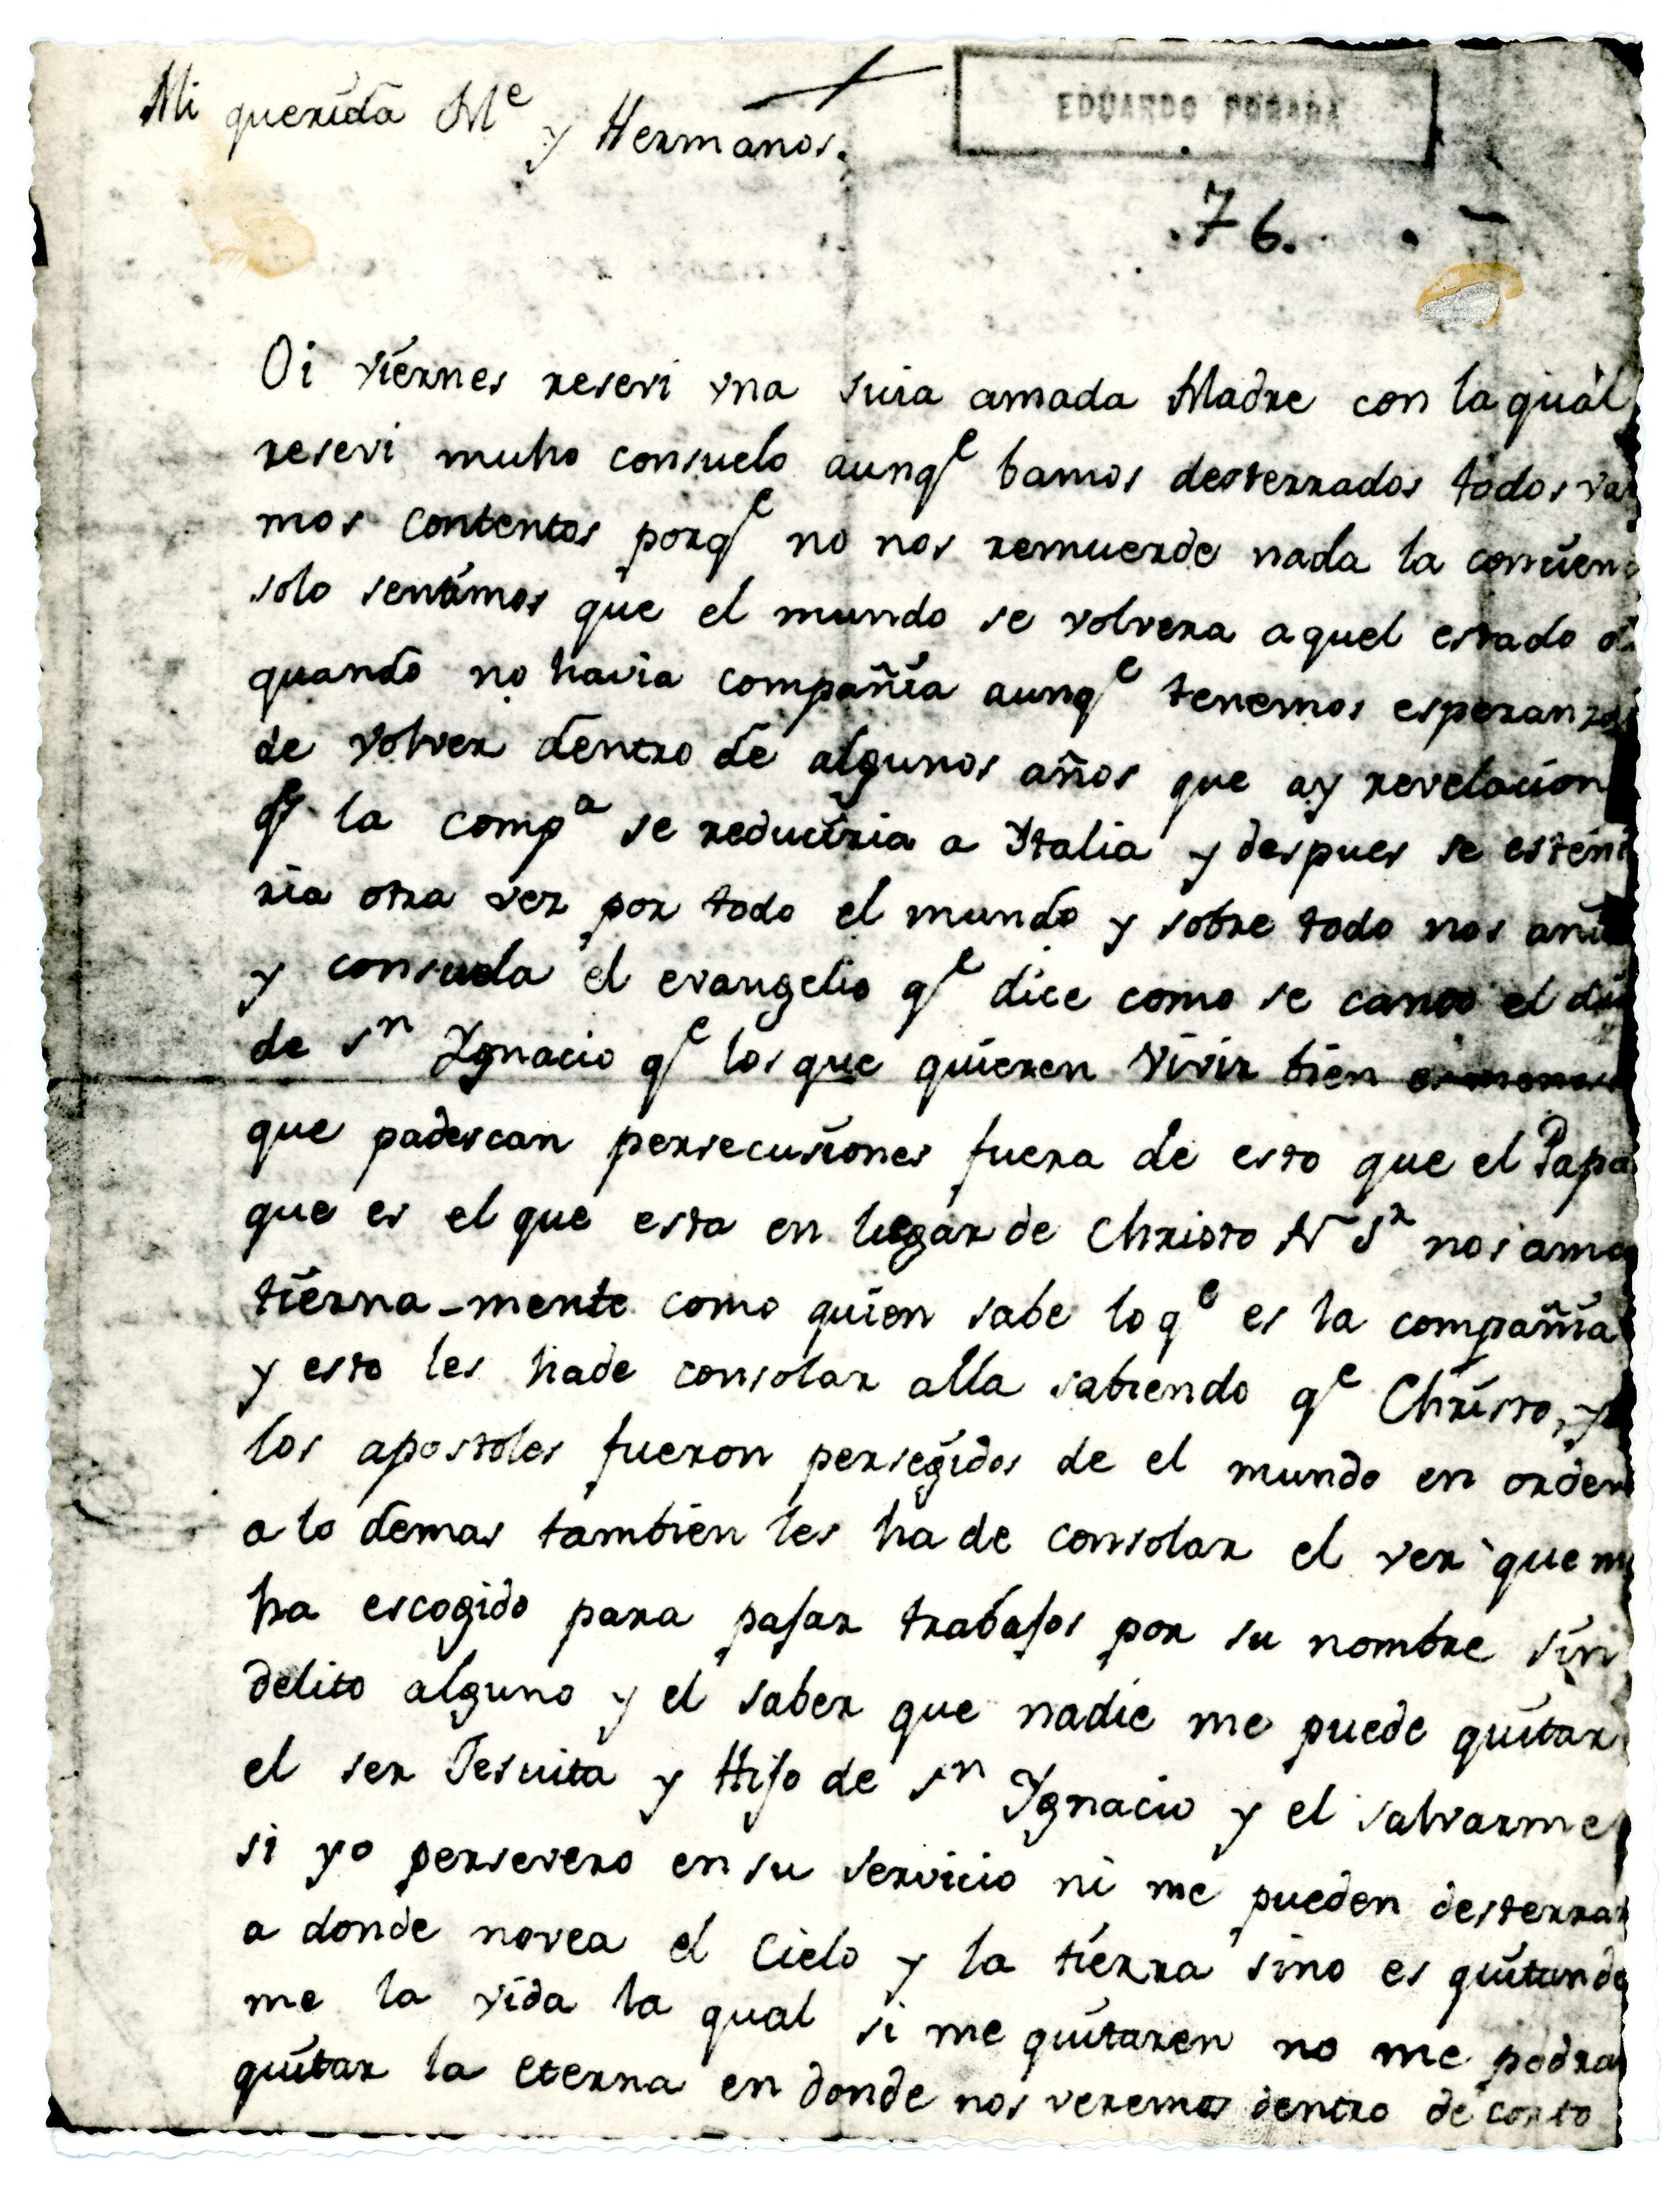 Mi querida M^e y Hermanos.
EDUARDO POSADA
.76.
Oi viernes resevi vna suia amada Madre con la qual
resevi muho consuelo aunq^e bamos desterrados todos va
mos contentos porq^e no nos remuerde nada la consien
solo sentimos que el mundo se volvera aquel estado
quando no havia compañia aunq^e tenemos esperanzas
de volver dentro de algunos años que ay revelacion
q^e la comp^a se reduciria a Italia y despues se esten
ria otra vez por todo el mundo y sobre todo nos
y consuela el evangelio q^e dice como se canto el dia
de s^n Ygnacio q^e los que quieren vivir bien
que padescan persecusiones fuera de esto que el Papa
que es el que esta en lugar de Christo N S^r nos ama
tierna-mente como quien sabe lo q^e es la compañia
y esto les hade consolar alla sabiendo q^e Christo, y
los apostoles fueron persegidos de el mundo en orden
a lo demas tambien les ha de consolar el ver que
ha escogido para pasar trabajos por su nombre sin
delito alguno y el saber que nadie me puede quitar
el ser Jesuita y Hijo de s^n Ygnacio y el salvarme
si yo persevero en su servicio ni me pueden desterrar
a donde novea el Cielo y la tierra sino es quitando
me la vida la qual si me quitaren no me podra
quitar la eterna en donde nos veremos dentro de corto